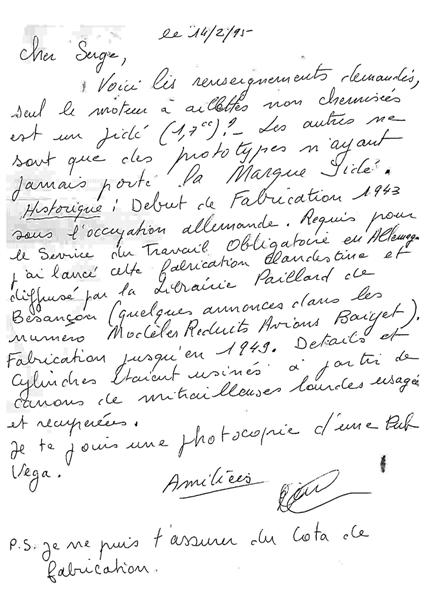 le 14/2/95
Cher Serge,
Voici les renseignements demandés,
seul le moteur à ailettes non chemisées
est un Jidé (1,7cc)?- Les autres ne
sont que des prototypes n'ayant
jamais porté la Marque Jidé.
Historique: Debut de Fabrication 1943
sous l'occupation allemande. Requis pour
le Service du Travail Obligatoire en Allemagne
j'ai lancé cette fabrication clandestine et
diffusé par la Librairie Paillard de
Besançon (quelques annonces dans les
numero Modèles Reduits Avions Bauget).
Fabrication jusqu'en 1949. Details et
Cylindres étaient usinés à partir de
canons de mitrailleuses lourdes usagés
et recuperées.
Je te jouis une photocopie d'une Pub
Vega.
Amitiées
P.S. je ne puis t'assurer du cota de
fabrication.